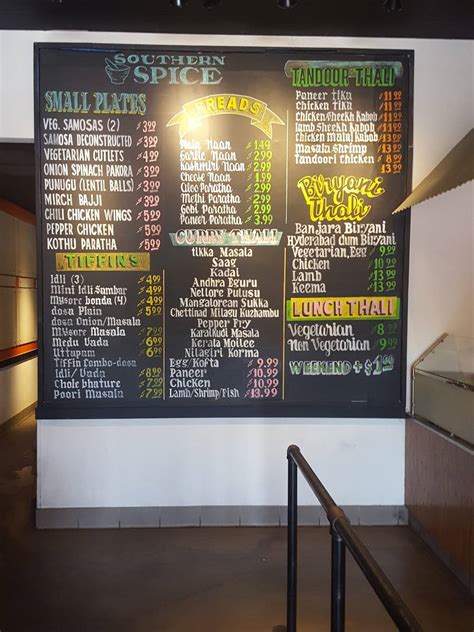 SOUTHERN
SPICE
SMALL PLATES
VEG. SAMOSAS (2) $3.99
SAMOSA DECONSTRUCTED $3.99
VEGETARIAN CUTLETS $4.99
ONION SPINACH PAKORA $3.99
PUNUGU (LENTIL BALLS) $3.99
MIRCH BAJJI $3.99
CHILI CHICKEN WINGS $5.99
PEPPER CHICKEN $5.99
KOTHU PARATHA $5.99
TIFFINS
Idli (3) $4.99
Mini Idli Sambar $4.99
Mysore bonda (4) $4.99
dosa Plain $5.99
dosa Onion/Masala $6.99
Mysore Masala $7.99
Medu Vada $4.99
Uttapam $6.99
Tiffin Combo-dosa
Idli/Vada $8.99
Chole bhature $7.99
Poori Masala $7.99
BREADS
Naan $1.49
Garlic Naan $2.99
Kashmiri Naan $2.99
Cheese Naan $2.99
Aloo Paratha $2.99
Methi Paratha $2.99
Gobi Paratha $2.99
Paneer Paratha $3.99
CURRY THALI
tikka Masala
Saag
Kadai
Andhra Eguru
Nellore Pulusu
Mangalorean Sukka
Chettinad Milagu Kuzhambu
Pepper Fry
Karaikudi Masala
Kerala Moilee
Nilagiri Korma
Egg/Kofta $9.99
Paneer $10.99
Chicken $10.99
Lamb/Shrimp/Fish $13.99
TANDOOR THALI
Paneer tika $11.99
Chicken Tikka $11.99
Chicken Sheekh Kabob
Lamb Sheekh Kabob
Malai Chicken
Masala Shrimp
Tandoori Chicken
Biryani
Thali
Banjara Biryani
Hyderabad dum Biryani
Vegetarian, Egg $9.99
Chicken
Lamb
Keema $13.99
LUNCH THALI
Vegetarian $8.99
Non Vegetarian $9.99
WEEKEND + $1.00